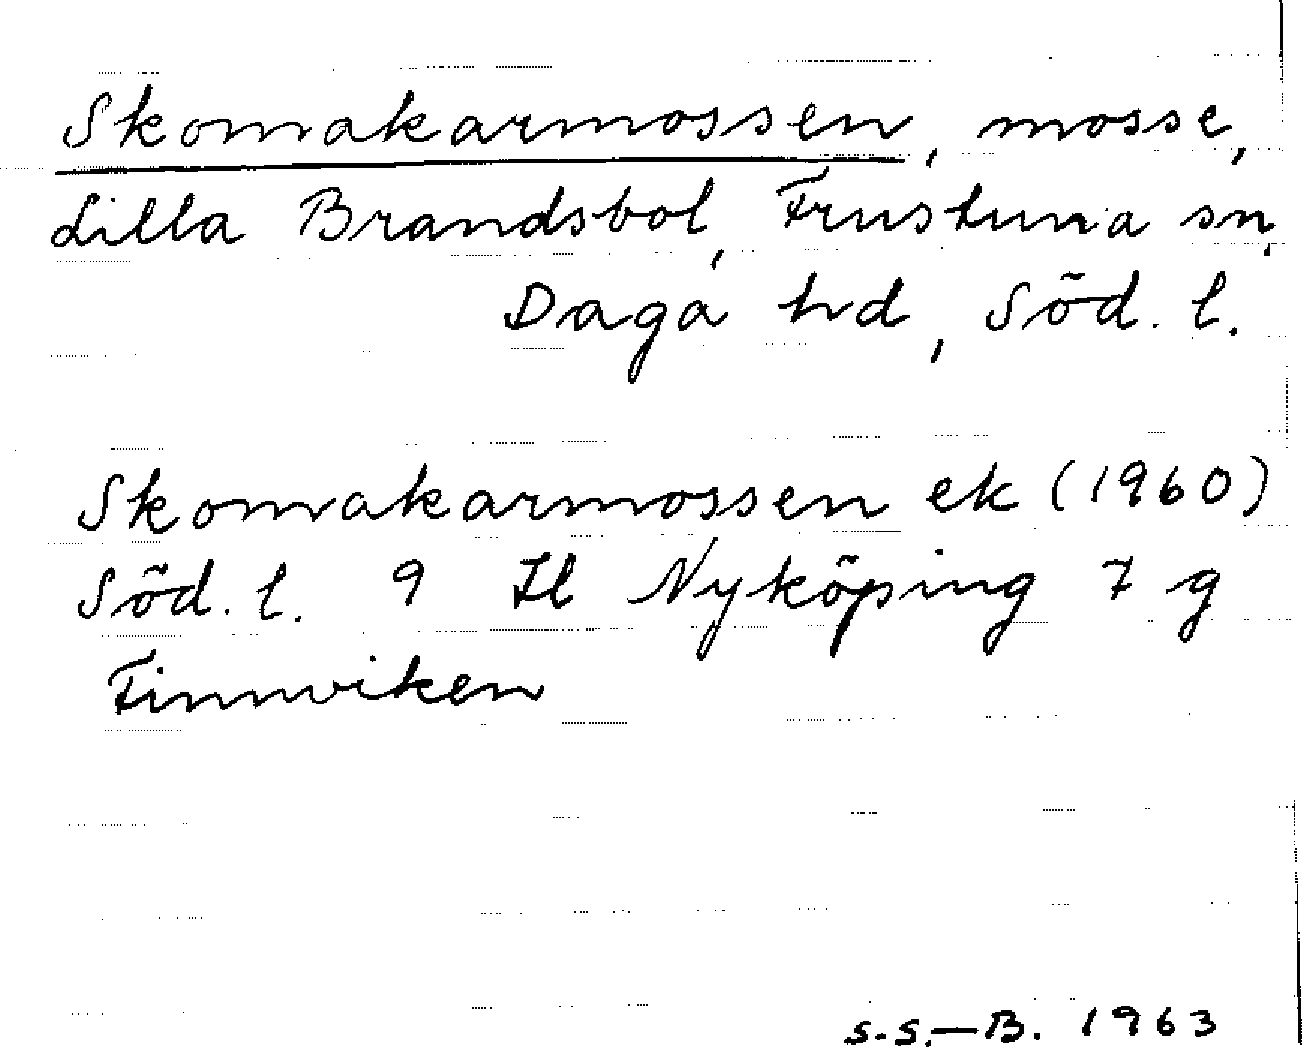 Skomakarmossen, mosse,
Lilla Brandsbol, Frustuna sn,
Daga hd, Söd. l.
Skomakarmossen ek (1960)
Söd. l. 9 Il Nyköping 7 g
Finnviken
S.S.—B. 1963